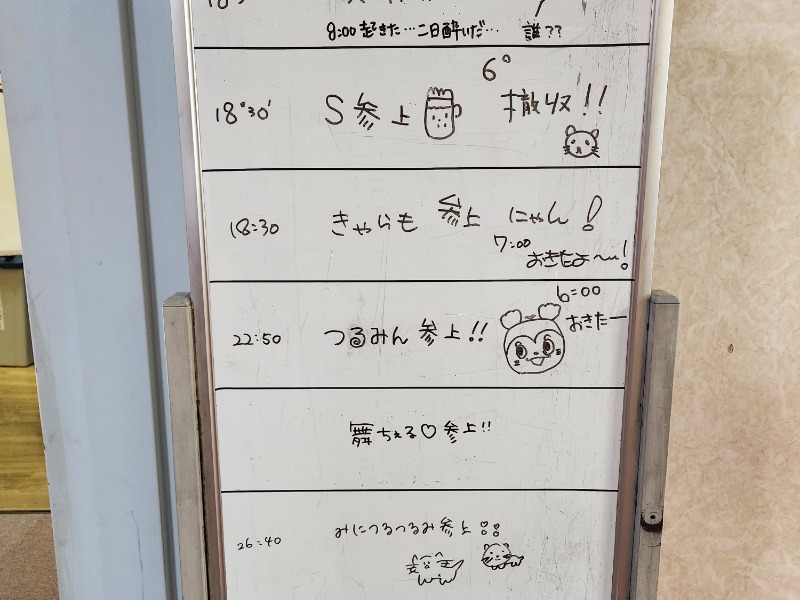 8:00 起きた…二日酔いだ… 誰??
6°
18:30' S参上 撤収!!
18:30 きゃらも 参上 にゃん!
7:00
おきたよ〜!
6:00
おきたー
22:50 つるみん 参上!!
舞ちぇる♡参上!!
26:40 みにつるつるみ参上